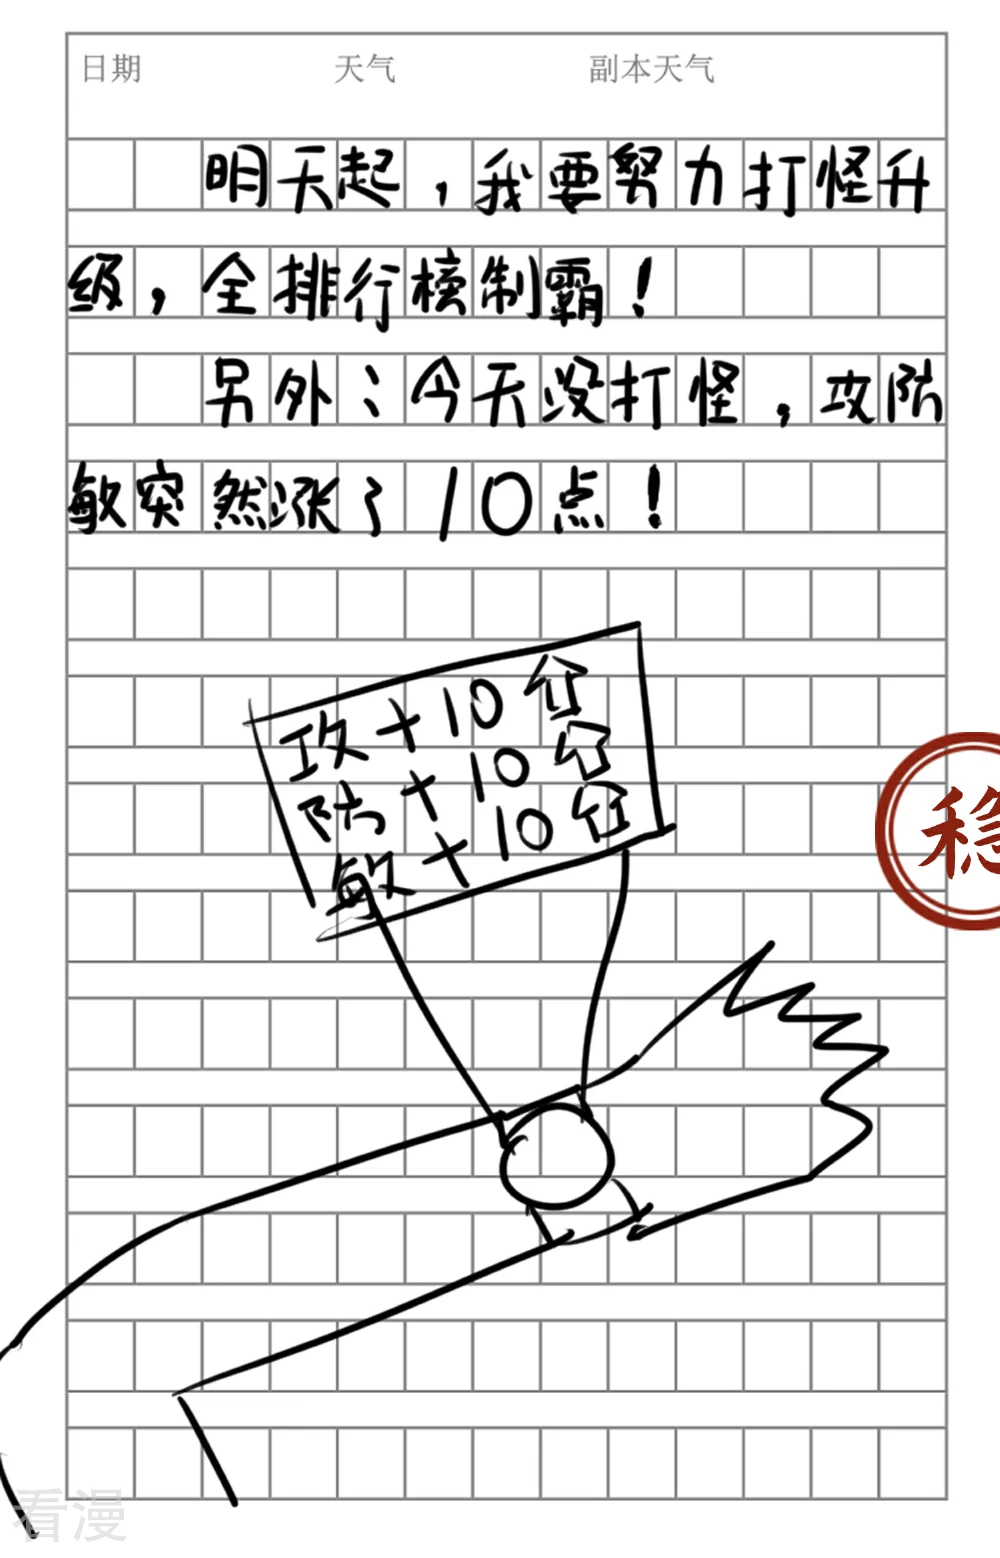 日期 天气 副本天气
明天起，我要努力打怪升
级，全排行榜制霸！
另外：今天没打怪，攻防
敏突然涨了10点！
攻+10分
防+10分
敏+10分
稳
看漫